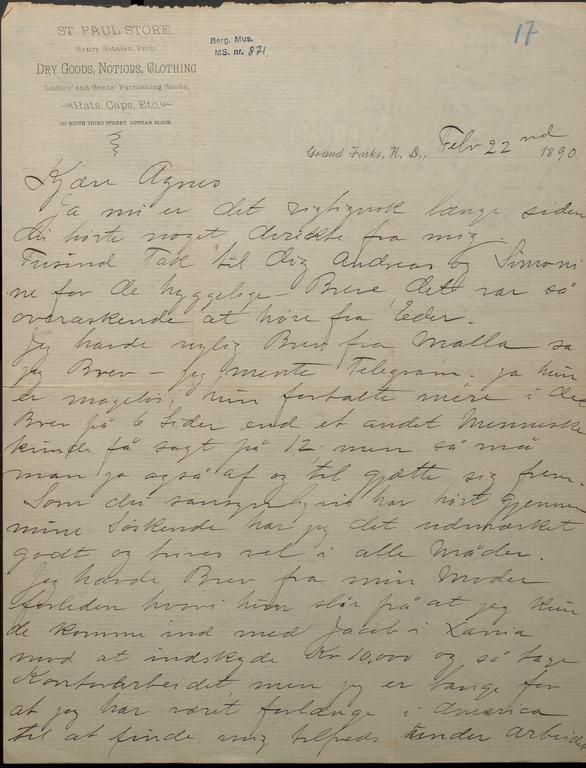 ST PAUL STORE,
Henry Gotzian, Prop.
DRY GOODS, NOTIONS, CLOTHING
Ladies' and Gents' Furnishing Goods,
Hats, Caps, Etc.
121 SOUTH THIRD STREET, GOTZIAN BLOCK.
Berg. Mus.
MS. nr. 871
17
Grand Forks, N. D., Febr 22nd 1890.
Kjære Agnes
Ja nu er det rigtignok længe siden
du hørte noget direkte fra mig.
Tusind Tak til dig Andreas og Simoni
ne for de hyggelige Breve, det var så
overaskende at høre fra Eder.
Jeg havde nylig Brev fra Malla sa
jeg Brev – jeg mente Telegram. ja hun
er mageløs, hun fortalte mere i det
Brev på 6 Sider end et andet Menneske
kunde få sagt på 12. men så må
man jo også af og til gjætte sig frem.
Som du sansynligvis har hørt gjennem
mine Søskende har jeg det udmærket
godt og trives vel i alle Måder.
Jeg havde Brev fra min Moder
forleden hvori hun slår på at jeg kun
de komme ind med Jacob i
mod at indskyde Kr 10,000 og så tage
Kontorarbeidet, men jeg er bange for
at jeg har været forlænge i America
til at finde mig tilfreds under Arbeidet